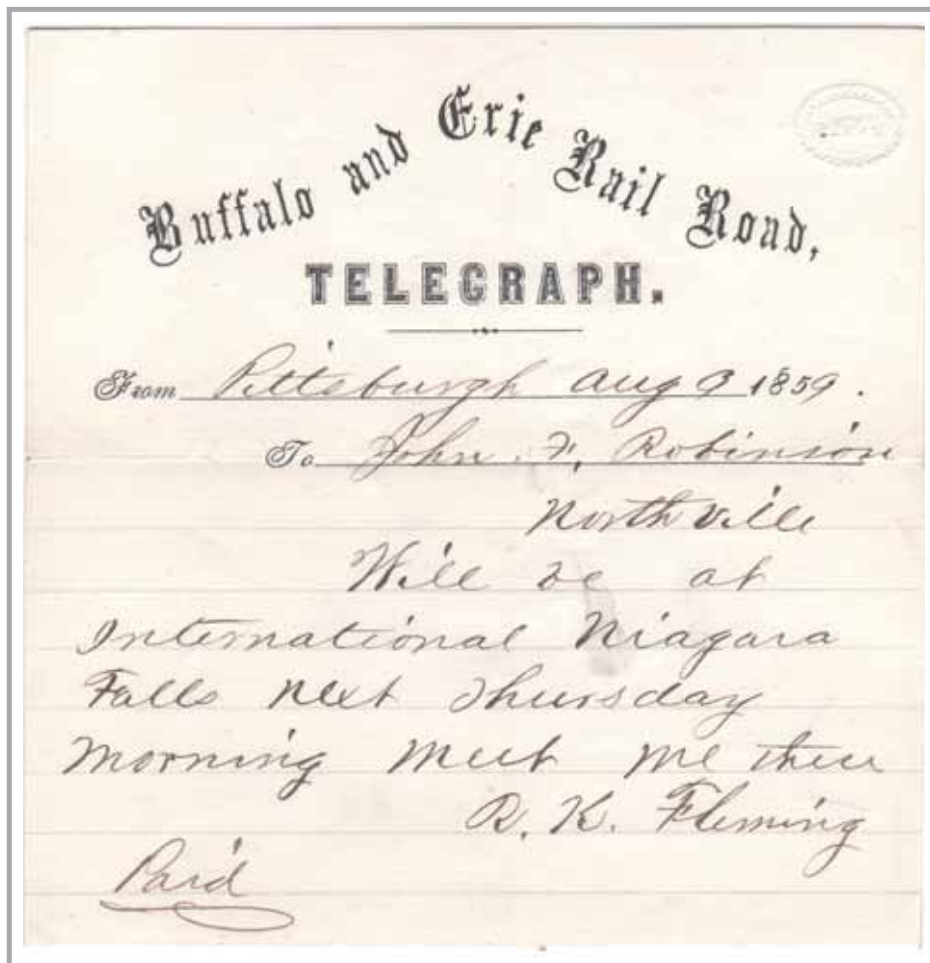 Buffalo and Erie Rail Road,
TELEGRAPH.
From Pittsburgh Aug 9 1859.
To John F. Robinson
Northville
Will be at
International Niagara
Falls next Thursday
Morning Meet me there
R. K. Fleming
Paid